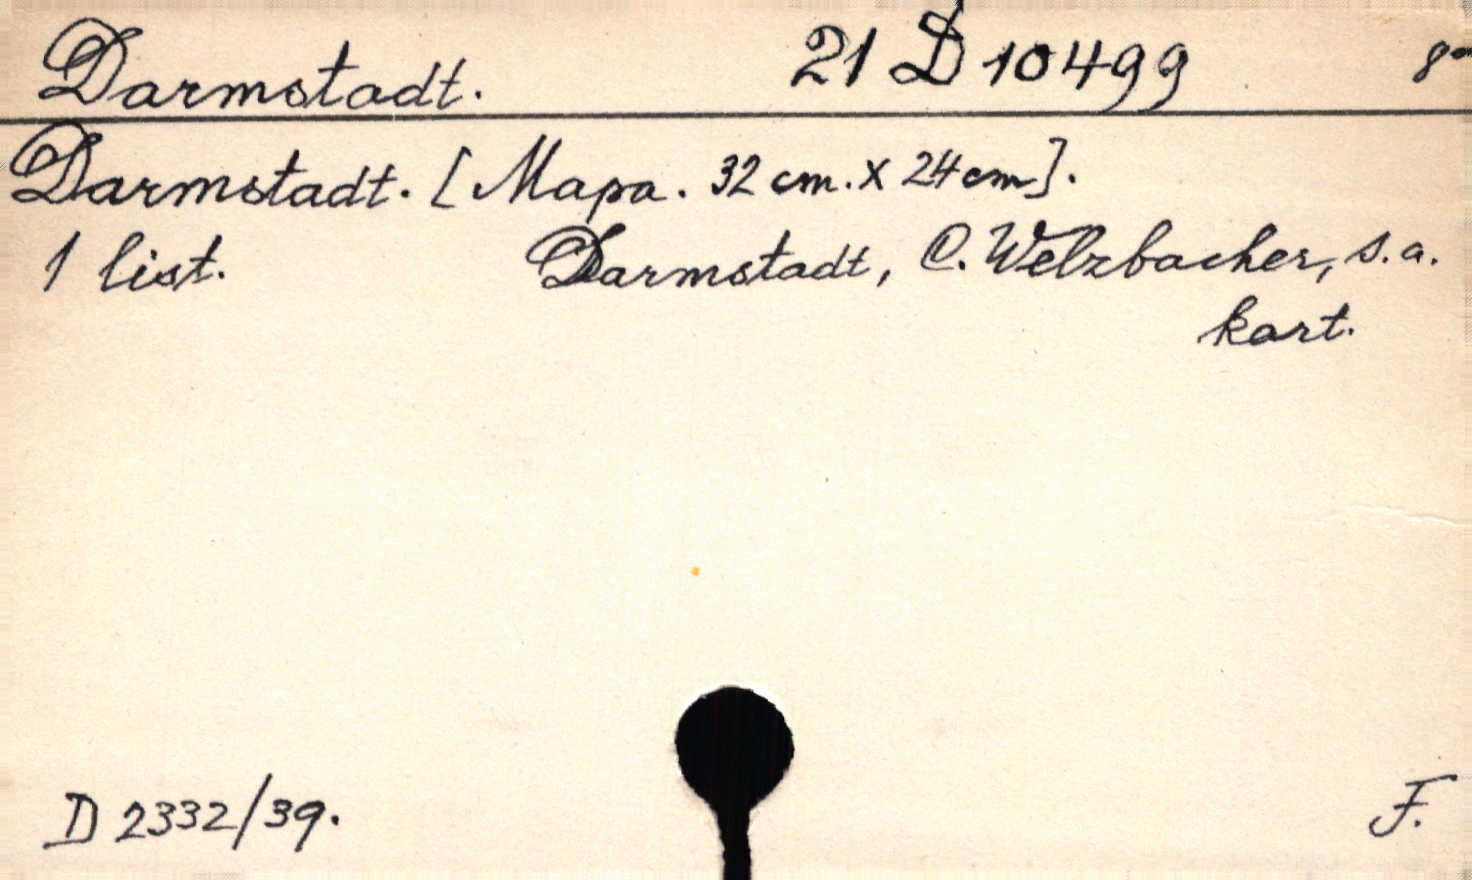 Darmstadt. 21 D 10499 8°
Darmstadt. [Mapa. 32 cm. x 24 cm].
1 list. Darmstadt, C. Welzbacher, s.a.
kart.
D 2332/39. F.